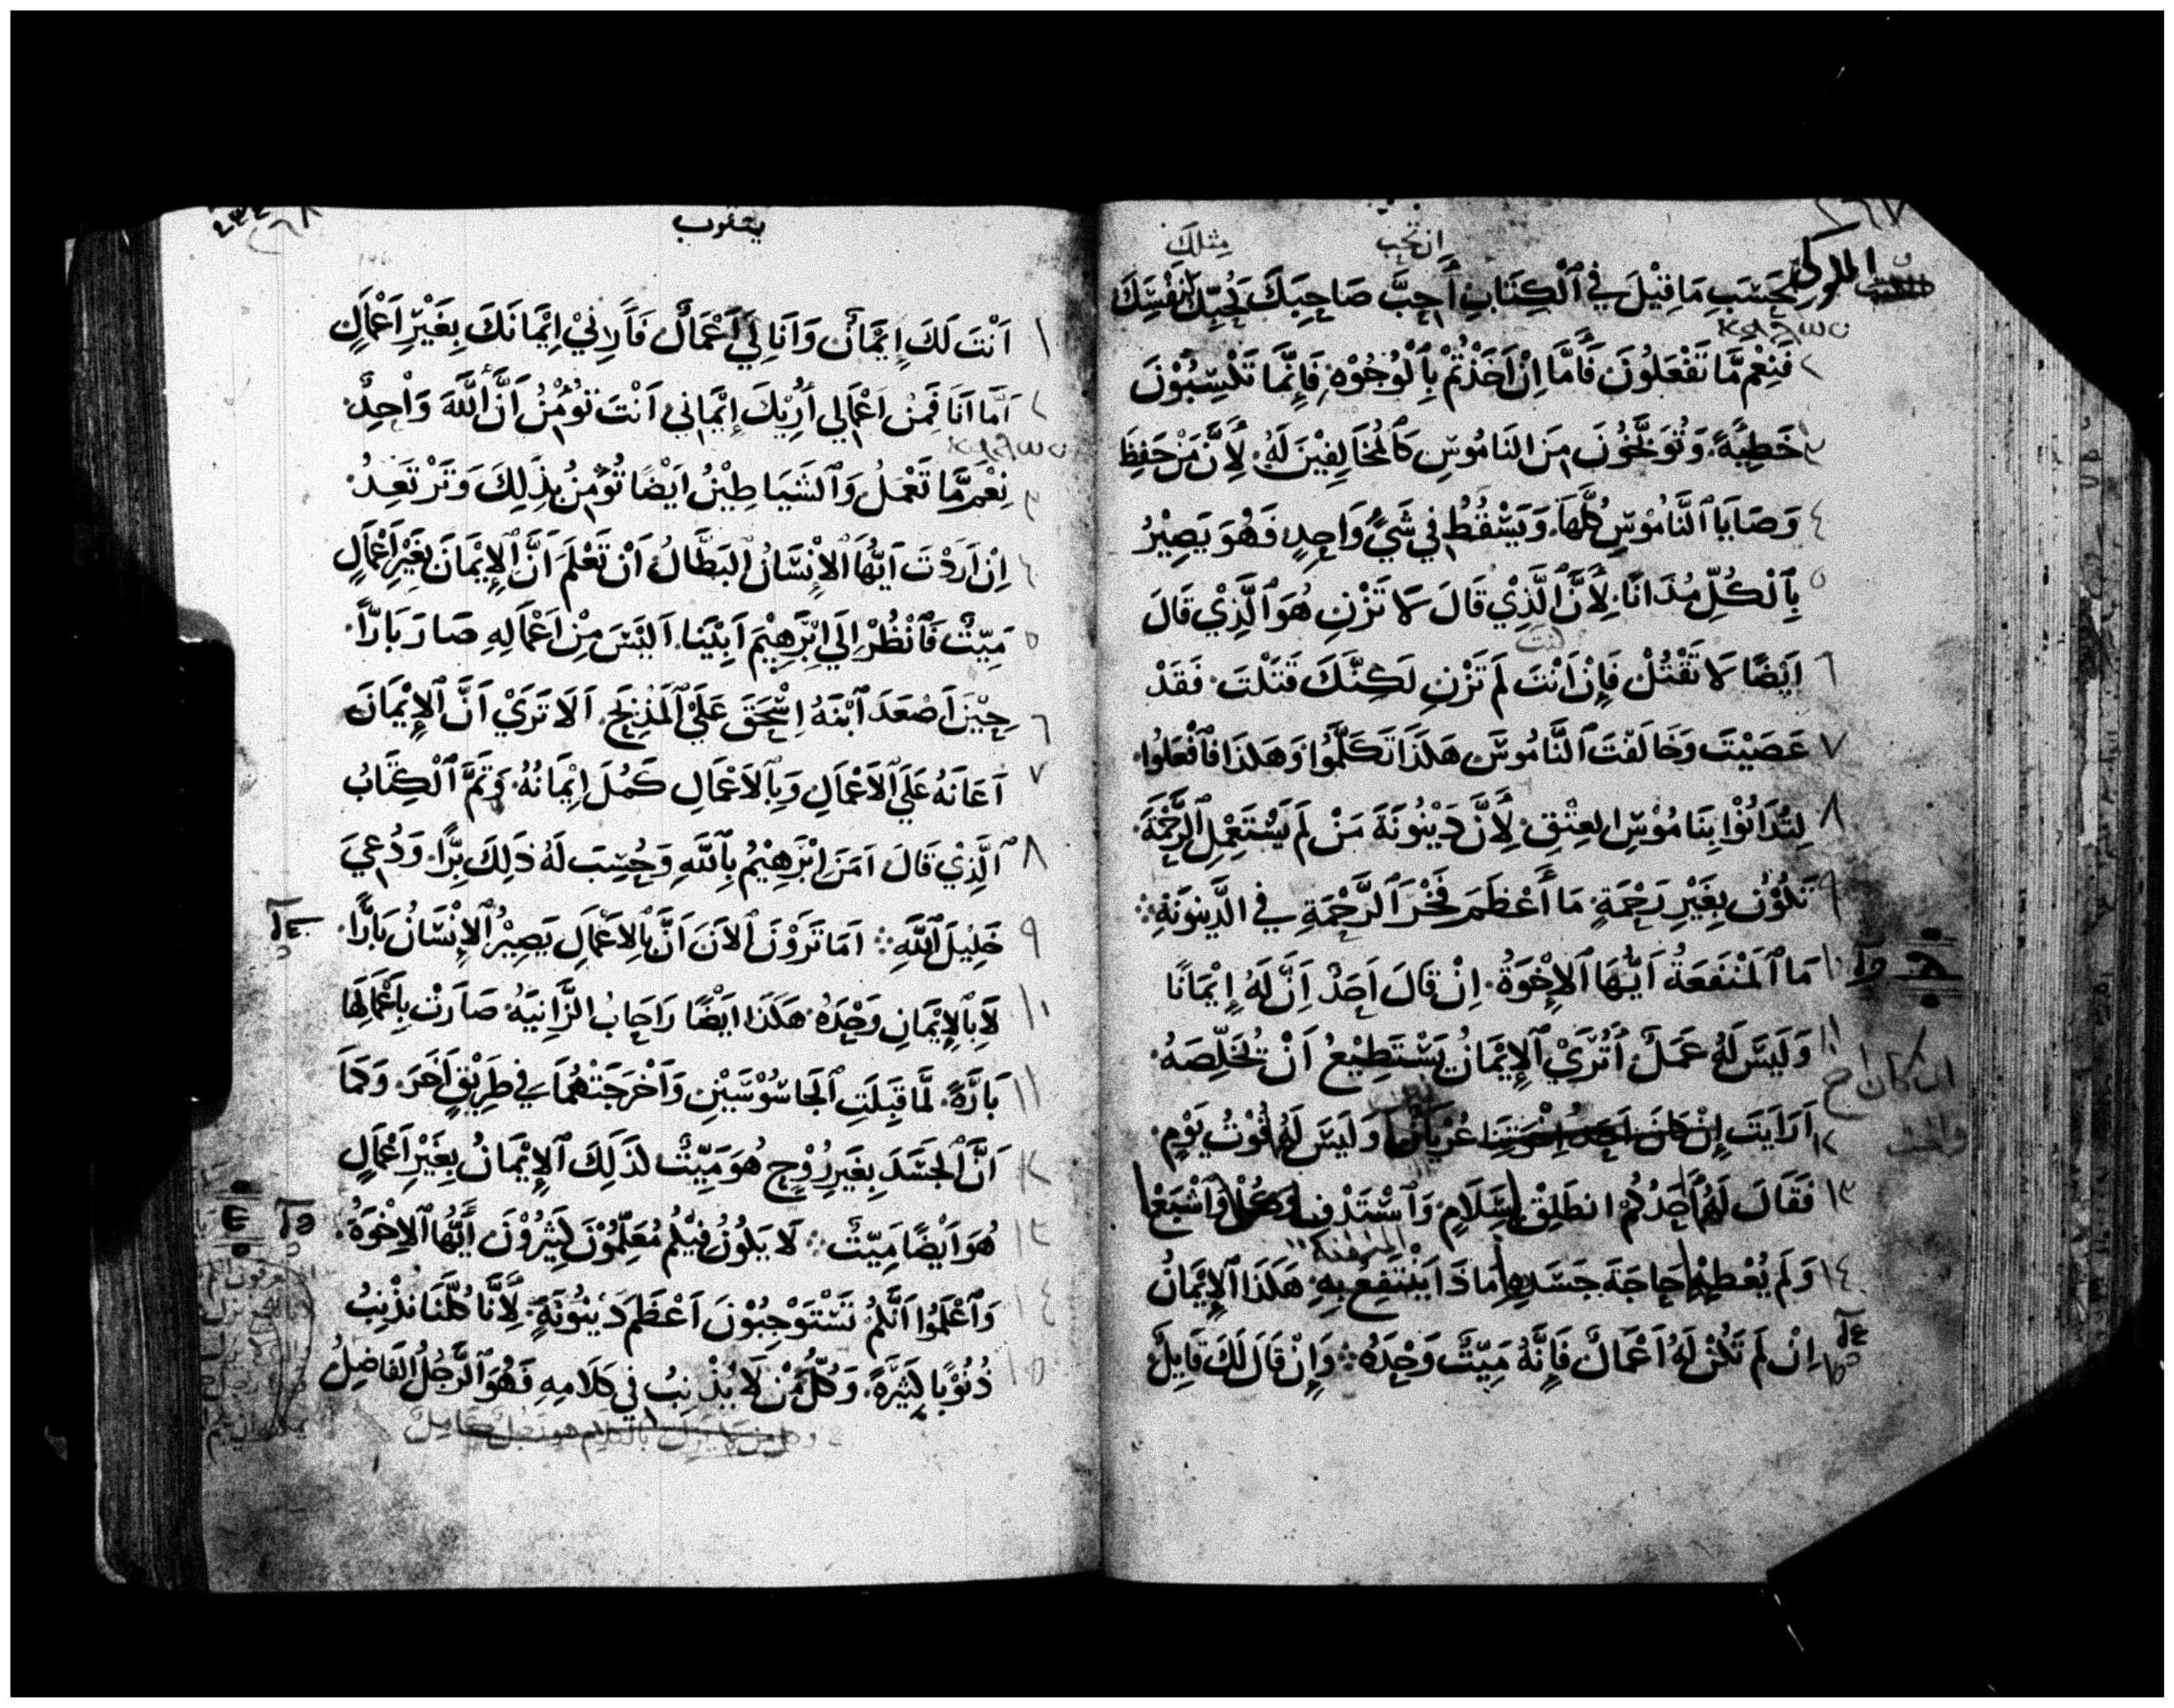 ان تحب مثلك
الملوكي بحَسَبِ مَا قِيْلَ فِي ٱلْكِتَابِ أَحِبَّ صَاحِبَكَ كَحُبِّكَ لِنَفْسِكَ
٢ فَنِعْمَ مَّا تَفْعَلُونَ فَأَمَّا اِنْ اَخَذْتُمْ بِٱلْوُجُوْهِ فَإِنَّمَا تَكْسِبُوْنَ
٣ خَطِيَّةً وَتُوَبَّخُوْنَ مِنَ النَامُوسِ كَٱلْمُخَالِفِيْنَ لَهُ لِأَنَّ مَنْ حَفِظَ
٤ وَصَايَا ٱلنَّامُوْسِ كُلَّهَا وَيَسْقُطُ فِي شَيْءٍ وَاحِدٍ فَهُوَ يَصِيْرُ
٥ بِٱلْكُلِّ مُدَانًا لِأَنَّ ٱلَّذِيْ قَالَ لَا تَزْنِ هُوَ ٱلَّذِيْ قَالَ
كنت
٦ اَيْضًا لَا تَقْتُلْ فَإِنْ اَنْتَ لَمْ تَزْنِ لَكِنَّكَ قَتَلْتَ فَقَدْ
٧ عَصَيْتَ وَخَالَفْتَ ٱلنَّامُوسَ هَكَذَا تَكَلَّمُوا وَهَكَذَا فَٱفْعَلُوا
٨ لِتُدَانُوْا بِنَامُوْسِ العِتْقِ لِأَنَّ دَيْنُونَةَ مَنْ لَمْ يَسْتَعْمِلِ ٱلرَّحْمَةَ
٩ تَكُوْنُ بِغَيْرِ رَحْمَةٍ مَا أَعْظَمَ فَخْرَ ٱلرَّحْمَةِ فِي الدَّيْنونَةِ
١٠ مَا ٱلْمَنْفَعَةُ اَيُّهَا ٱلاِخْوَةُ اِنْ قَالَ اَحَدٌ اِنَّ لَهُ إِيْمَانًا
١١ وَلَيْسَ لَهُ عَمَلٌ أَتُرَيْ ٱلإِيْمَانُ يَسْتَطِيْعُ اَنْ يُخَلِّصَهُ
ان كان اخ
١٢ اَرَاَيْتَ إِنْ كَانَ اَحَدُ اِخْوَتِنَا عُرْيَانًا وَلَيْسَ لَهُ قُوْتُ يَوْمٍ
١٣ فَقَالَ لَهُ اَحَدُكُمُ انطَلِقْ بِسَلَامٍ وَٱسْتَدْفِ وَكُلْ وَٱشْبَعْ
١٤ وَلَمْ يُعْطِيْهِ حَاجَةَ جَسَدِهِ مَاذَا يَنْتَفِعُ بِهِ هَكَذَا ٱلإِيْمَانُ
١٥ اِنْ لَمْ تَكُنْ لَهُ اَعْمَالٌ فَإِنَّهُ مَيِّتٌ وَحْدَهُ وَإِنْ قَالَ لَكَ قَايِلٌ
يعقوب
١ اَنْتَ لَكَ إِيْمَانٌ وَاَنَا لِي اَعْمَالٌ فَأَرِنِيْ اِيْمَانَكَ بِغَيْرِ اَعْمَالٍ
٢ اَمَّا اَنَا فَمِنْ اَعْمَالِي أُرِيْكَ إِيْمَانِي اَنْتَ تُؤْمِنُ اَنَّ ٱللَّهَ وَاْحِدٌ
٣ نِعْمَ مَّا تَعْمَلُ وَٱلشَيَاطِيْنُ اَيْضًا تُؤْمِنُ بِذَلِكَ وَتَرْتَعِدُ
٤ اِنْ اَرَدْتَ اَيُّهَا ٱلاِنْسَانُ ٱلبَطَّالُ اَنْ تَعْلَمَ اَنَّ ٱلإِيْمَانَ بِغَيْرِ اَعْمَالٍ
٥ مَيِّتٌ فَٱنْظُرْ اِلَي اِبْرَهِيْمَ اَبِيْنَا اَلَيْسَ مِنْ اَعْمَالِهِ صَارَ بَارًّا
٦ حِيْنَ اَصْعَدَ ٱبْنَهُ اِسْحَقَ عَلَيْ ٱلمَذْبَحِ اَلَا تَرَيْ اَنَّ ٱلإِيْمَانَ
٧ اَعَانَهُ عَلَي ٱلاَعْمَالِ وَبِٱلاَعْمَالِ كَمُلَ اِيْمَانُهُ وَتَمَّ ٱلْكِتَابُ
٨ ٱلَّذِيْ قَالَ اَمَنَ اِبْرَهِيْمُ بِٱللَّهِ وَحُسِبَ لَهُ ذَلِكَ بِرًّا وَدُعِيَ
٩ خَلِيْلَ ٱللَّهِ اَمَا تَرَوْنَ ٱلاَنَ اَنَّ بِٱلاَعْمَالِ يَصِيْرُ ٱلاِنْسَانُ بَارًّا
١٠ لَا بِٱلإِيْمَانِ وَحْدَهُ هَكَذَا اَيْضًا رَاحَابُ الزَّانِيَهُ صَارَتْ بِاَعْمَالِهَا
١١ بَارَّةً لَمَّا قَبِلَتِ ٱلجَاسُوْسَيْنِ وَاَخْرَجَتْهُمَا فِي طَرِيْقٍ اَخَرَ وَكَمَا
١٢ اَنَّ ٱلْجَسَدَ بِغَيْرِ رُوْحٍ هُوَ مَيِّتٌ لذَلِكَ ٱلإِيْمَانُ بِغَيْرِ اَعْمَالٍ
١٣ هُوَ اَيْضًا مَيِّتٌ لَا يَكُوْنُ فِيْكُمْ مُعَلِّمُوْنَ كَثِيْرُوْنَ أَيُّهَا ٱلاِخْوَةُ
١٤ وَٱعْلَمُوا اَنَّكُمْ تَسْتَوْجِبُوْنَ اَعْظَمَ دَيْنُونَةٍ لِأَنَّا كُلَّنَا نُذْنِبُ
١٥ ذُنُوْبًا كَثِيْرَةً وَكُلُّ مَنْ لَا يُذْنِبُ فِي كَلَامِهِ فَهُوَ ٱلرَّجُلُ الفَاضِلُ
وكل من لا يزل بالكلام هو رجل كامل